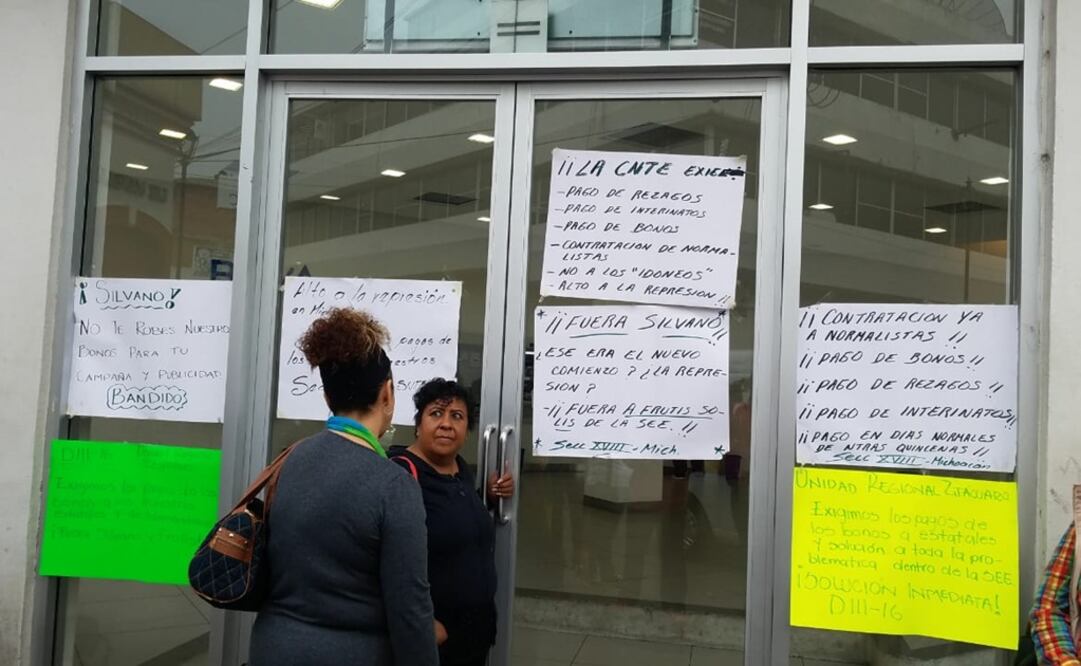 ¡ SILVANO !
NO TE ROBES NUESTRO
BONOS PARA TU
CAMPAÑA Y PUBLICIDAD
BANDIDO
DIII-16
Exigimos los pagos
Alto a la represión
en
pagos de
los
¡¡LA CNTE EXIGE!!
-PAGO DE REZAGOS
-PAGO DE INTERINATOS
-PAGO DE BONOS
-CONTRATACION DE NORMA-
LISTAS
-NO A LOS "IDONEOS"
-ALTO A LA REPRESION !!
* ¡¡FUERA SILVANO !! *
¿ESE ERA EL NUEVO
COMIENZO ? ¿LA REPRE-
SION ?
-¡¡ FUERA A FRUTIS SO-
LIS DE LA SEE. !!
* SECC XVIII - MICH. *
¡¡ CONTRATACION YA
A NORMALISTAS !!
¡¡ PAGO DE BONOS !!
¡¡PAGO DE REZAGOS !!
¡¡ PAGO DE INTERINATOS!!
¡¡ PAGO EN DIAS NORMALES
DE NTRAS QUINCENAS !!
SECC XVIII - Michoacán
UNIDAD REGIONAL ZITACUARO
Exigimos los pagos de
los bonos a estatales
y solución a toda la pro-
blematica dentro de la SEE
¡SOLUCIÓN INMEDIATA!
DIII-16